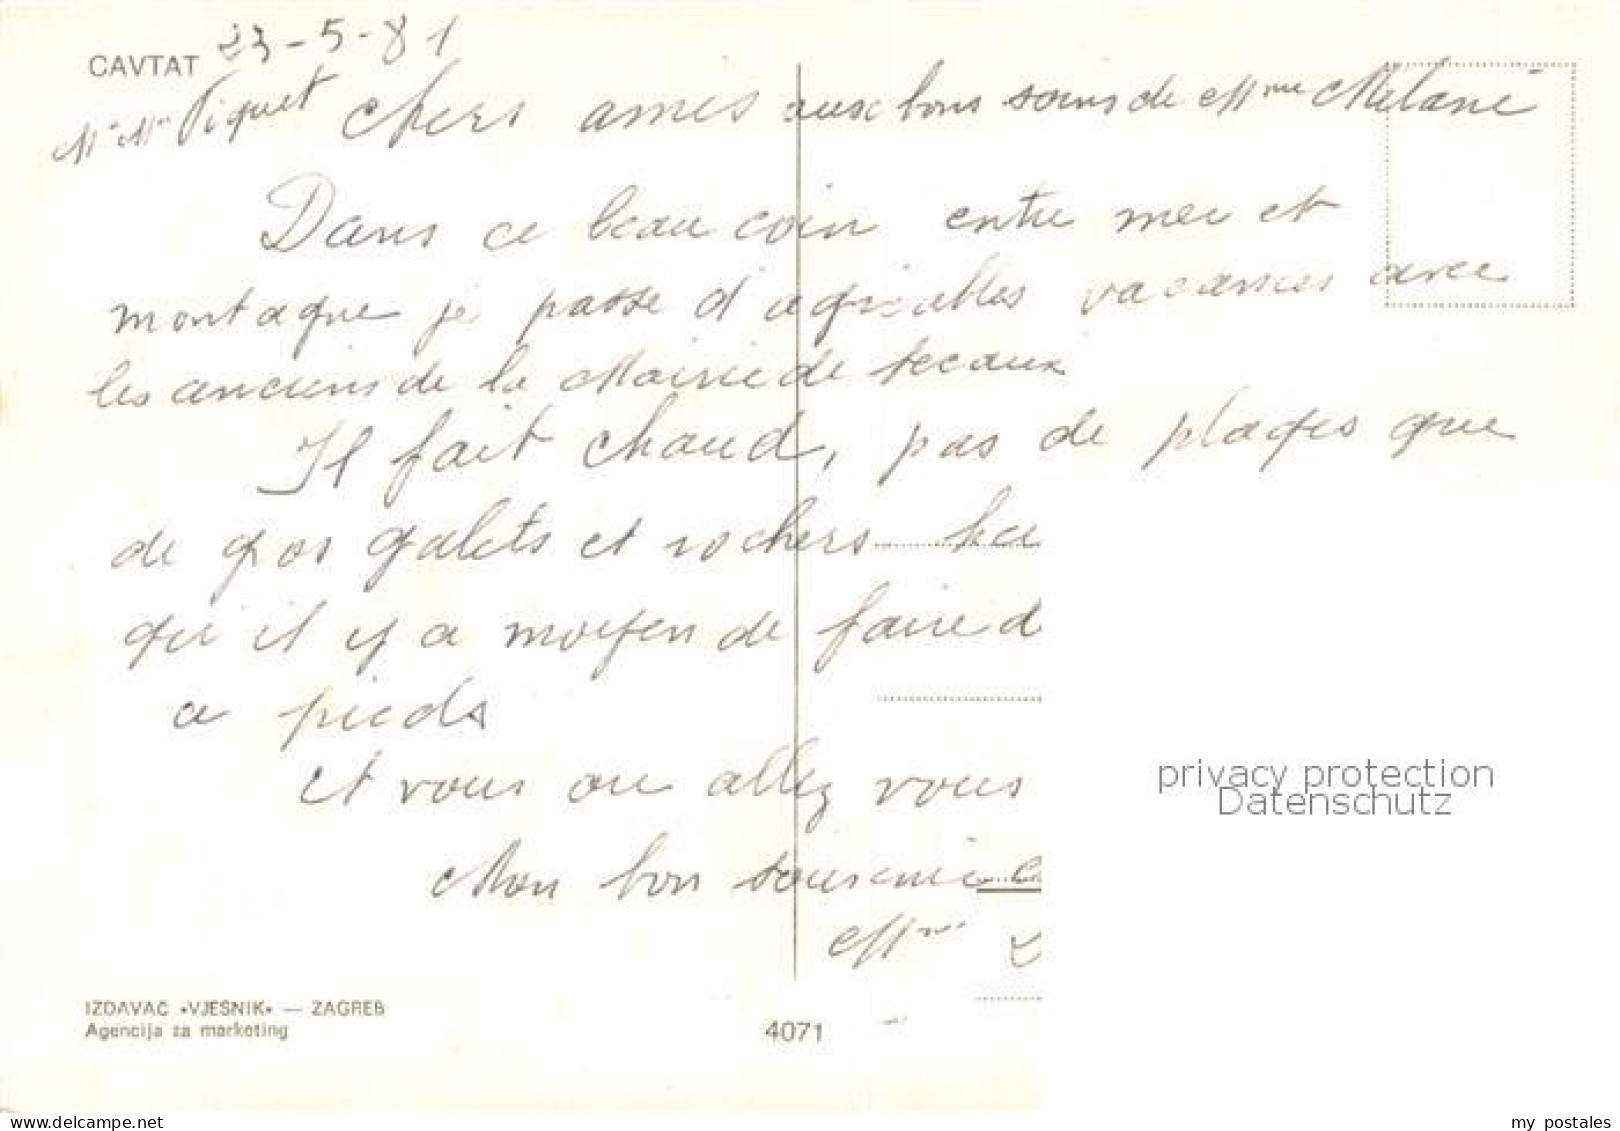 CAVTAT 23-5-81
Mr Mme Piquet chers amis aux bons soins de Mme Melanie
Dans ce beau coin entre mer et
montagne je passe d'agréables vacances avec
les anciens de la Mairie de Sceaux
Il fait chaud, pas de plages que
de gros galets et rochers
qu'il y a moyen de faire d
a pieds
et vous ou allez vous
Mon bon souvenir
Mme
privacy protection
Datenschutz
IZDAVAČ «VJESNIK» — ZAGREB
Agencija za marketing
4071
www.delcampe.net
my_postales